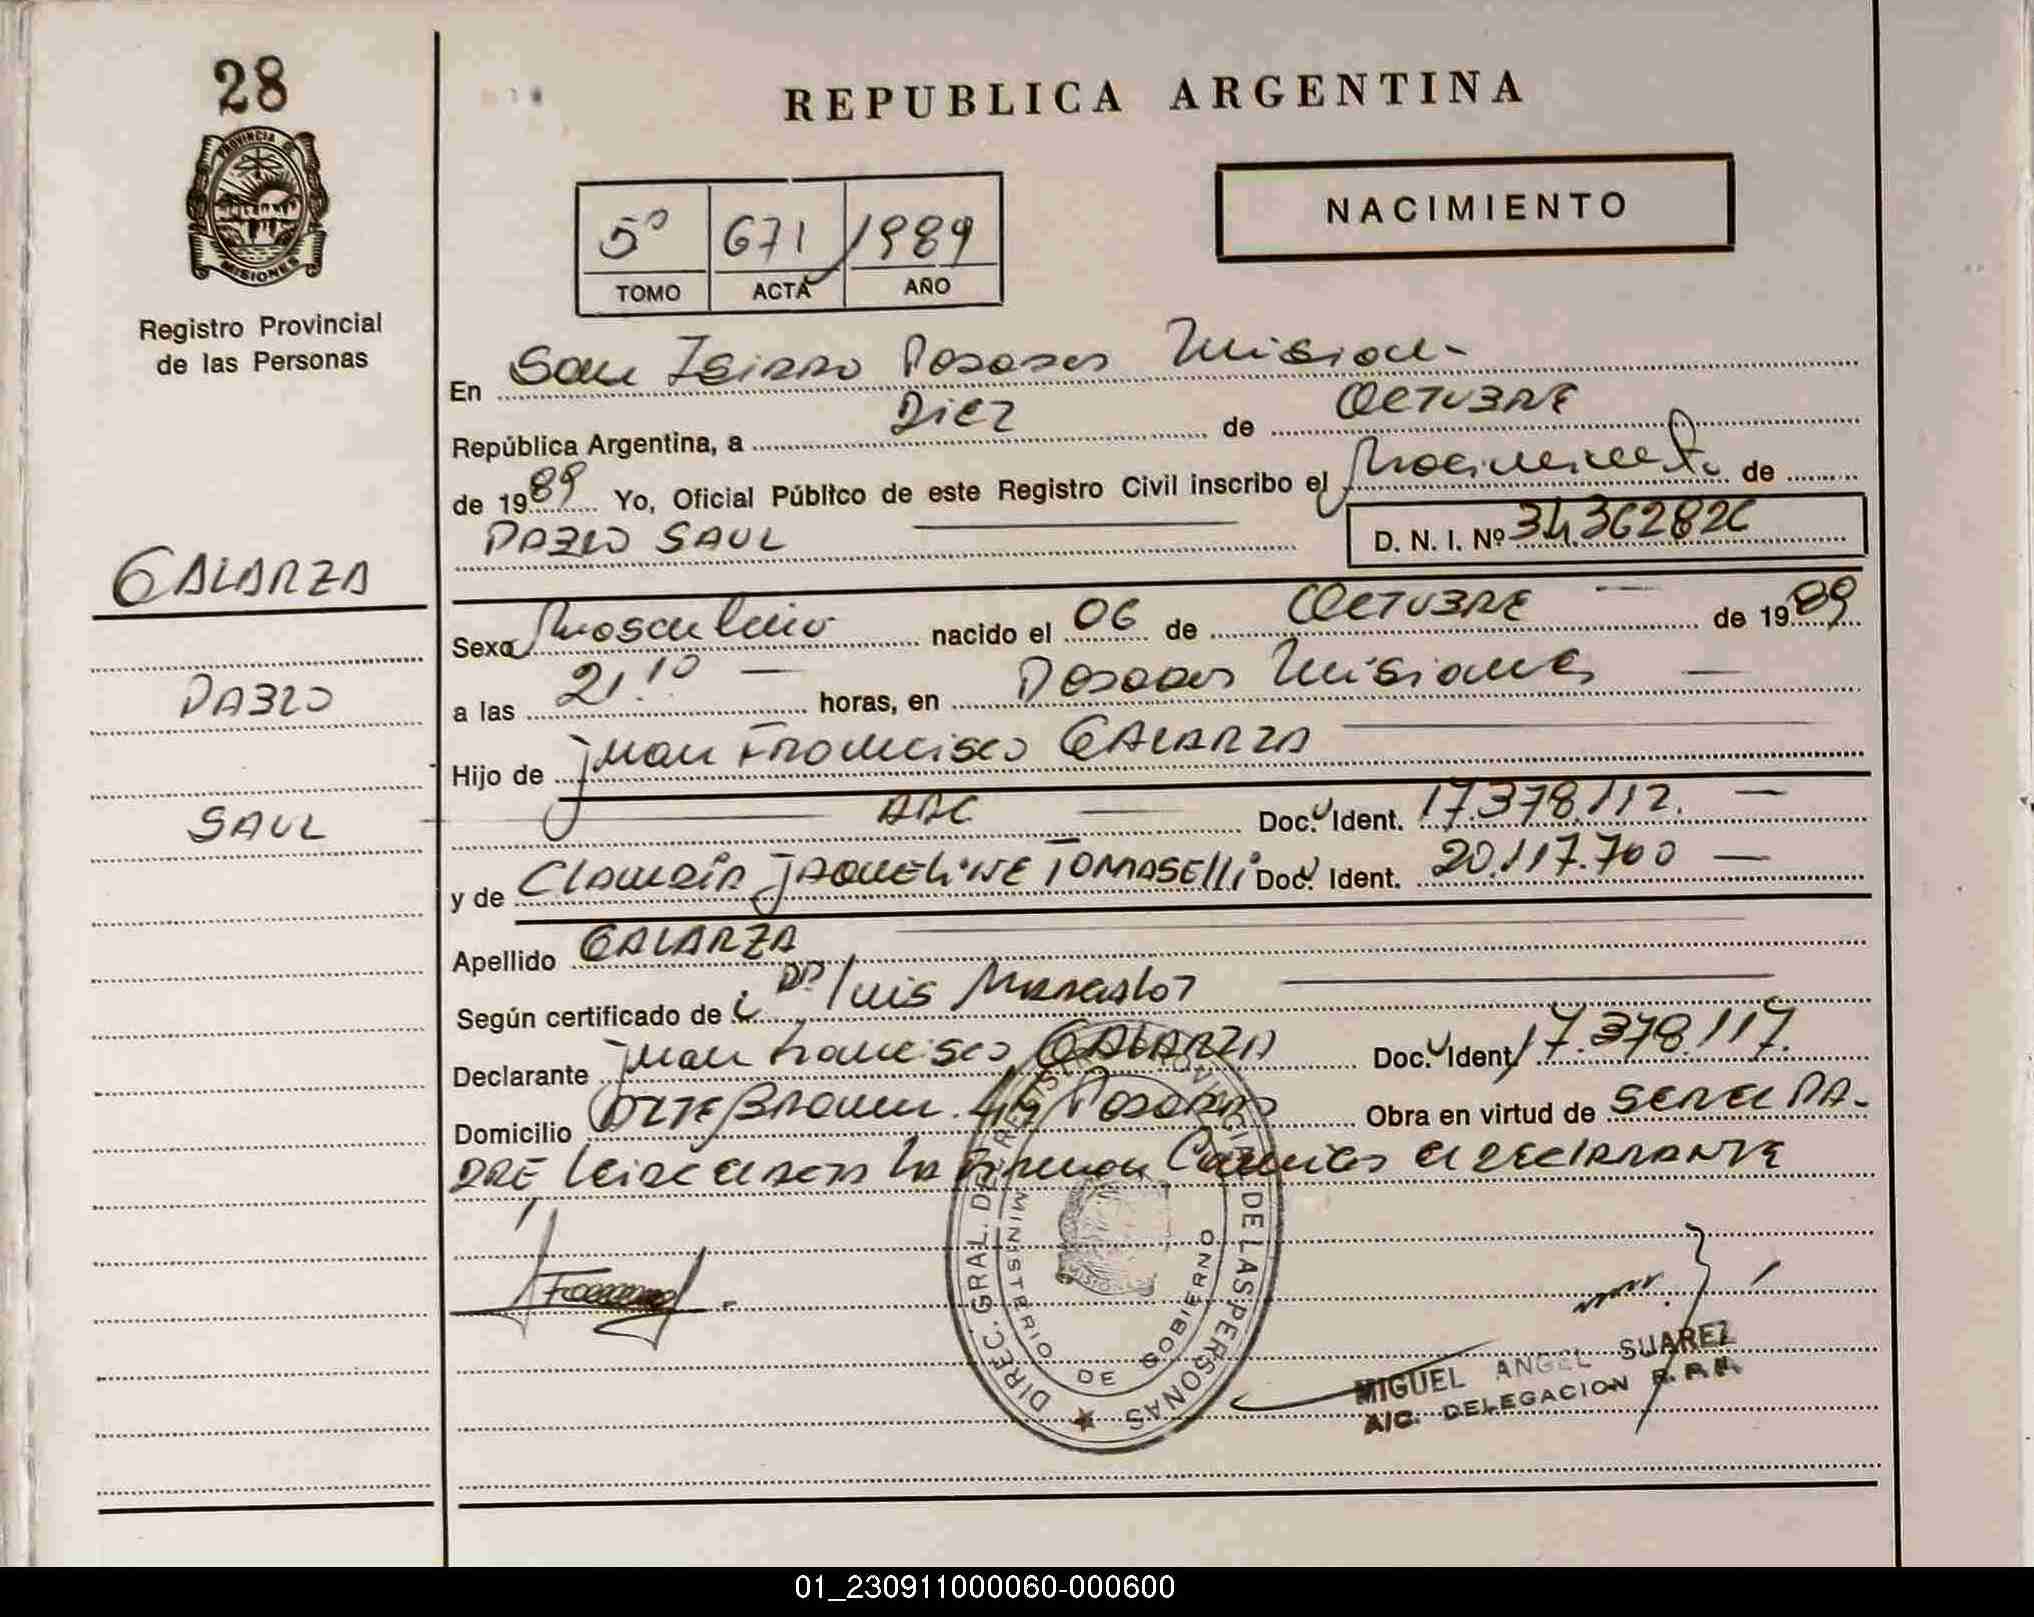 28
PROVINCIA DE
MISIONES
Registro Provincial
de las Personas
GALARZA
PABLO
SAUL
REPUBLICA ARGENTINA
NACIMIENTO
5º 671 1989
TOMO ACTA AÑO
En San Isidro Posadas Misiones
República Argentina, a Diez de OCTUBRE
de 1989 Yo, Oficial Público de este Registro Civil inscribo el Nacimiento de
PABLO SAUL D. N. I. Nº 34362826
Sexo Masculino nacido el 06 de OCTUBRE de 1989
a las 21.10 horas, en Posadas Misiones
Hijo de Juan Francisco GALARZA
ARG Doc. Ident. 17.378.112.
y de Claudia JAQUELINE TOMASELLI Doc. Ident. 20.117.700
Apellido GALARZA
Según certificado de Dr. Luis
Declarante Juan Francisco GALARZA Doc. Ident. 17.378.117.
Domicilio Brown Posadas Obra en virtud de SER EL PA-
DRE Leida el acta la firman Conmigo el DECLARANTE
DIREC. GRAL. DE REGISTRO PROVINCIAL DE LAS PERSONAS
MINISTERIO DE GOBIERNO
MIGUEL ANGEL SUAREZ
A/C. DELEGACION R. P. P.
01_230911000060-000600